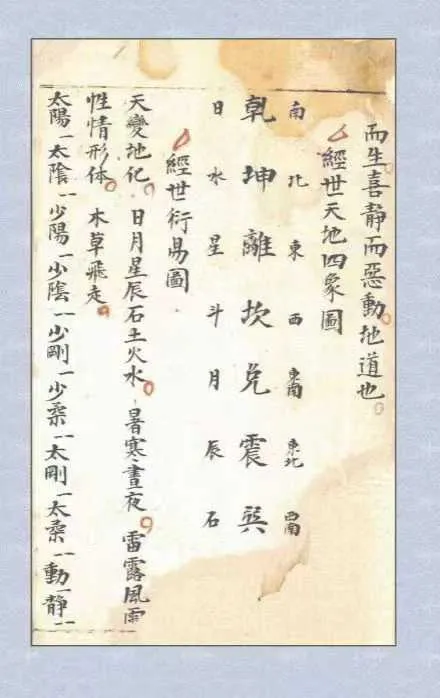 而生喜静而惡動地道也
經世天地四象圖
南 北 東 西 東南 東北 西南
乾 坤 離 坎 兌 震 巽
日 水 星 斗 月 辰 石
經世衍易圖
天變地化 日月星辰石土火水 暑寒晝夜 雷露風雨
性情形体 木草飛走
太陽一太陰一少陽一少陰一少剛一少柔一太剛一太柔一動一静一一